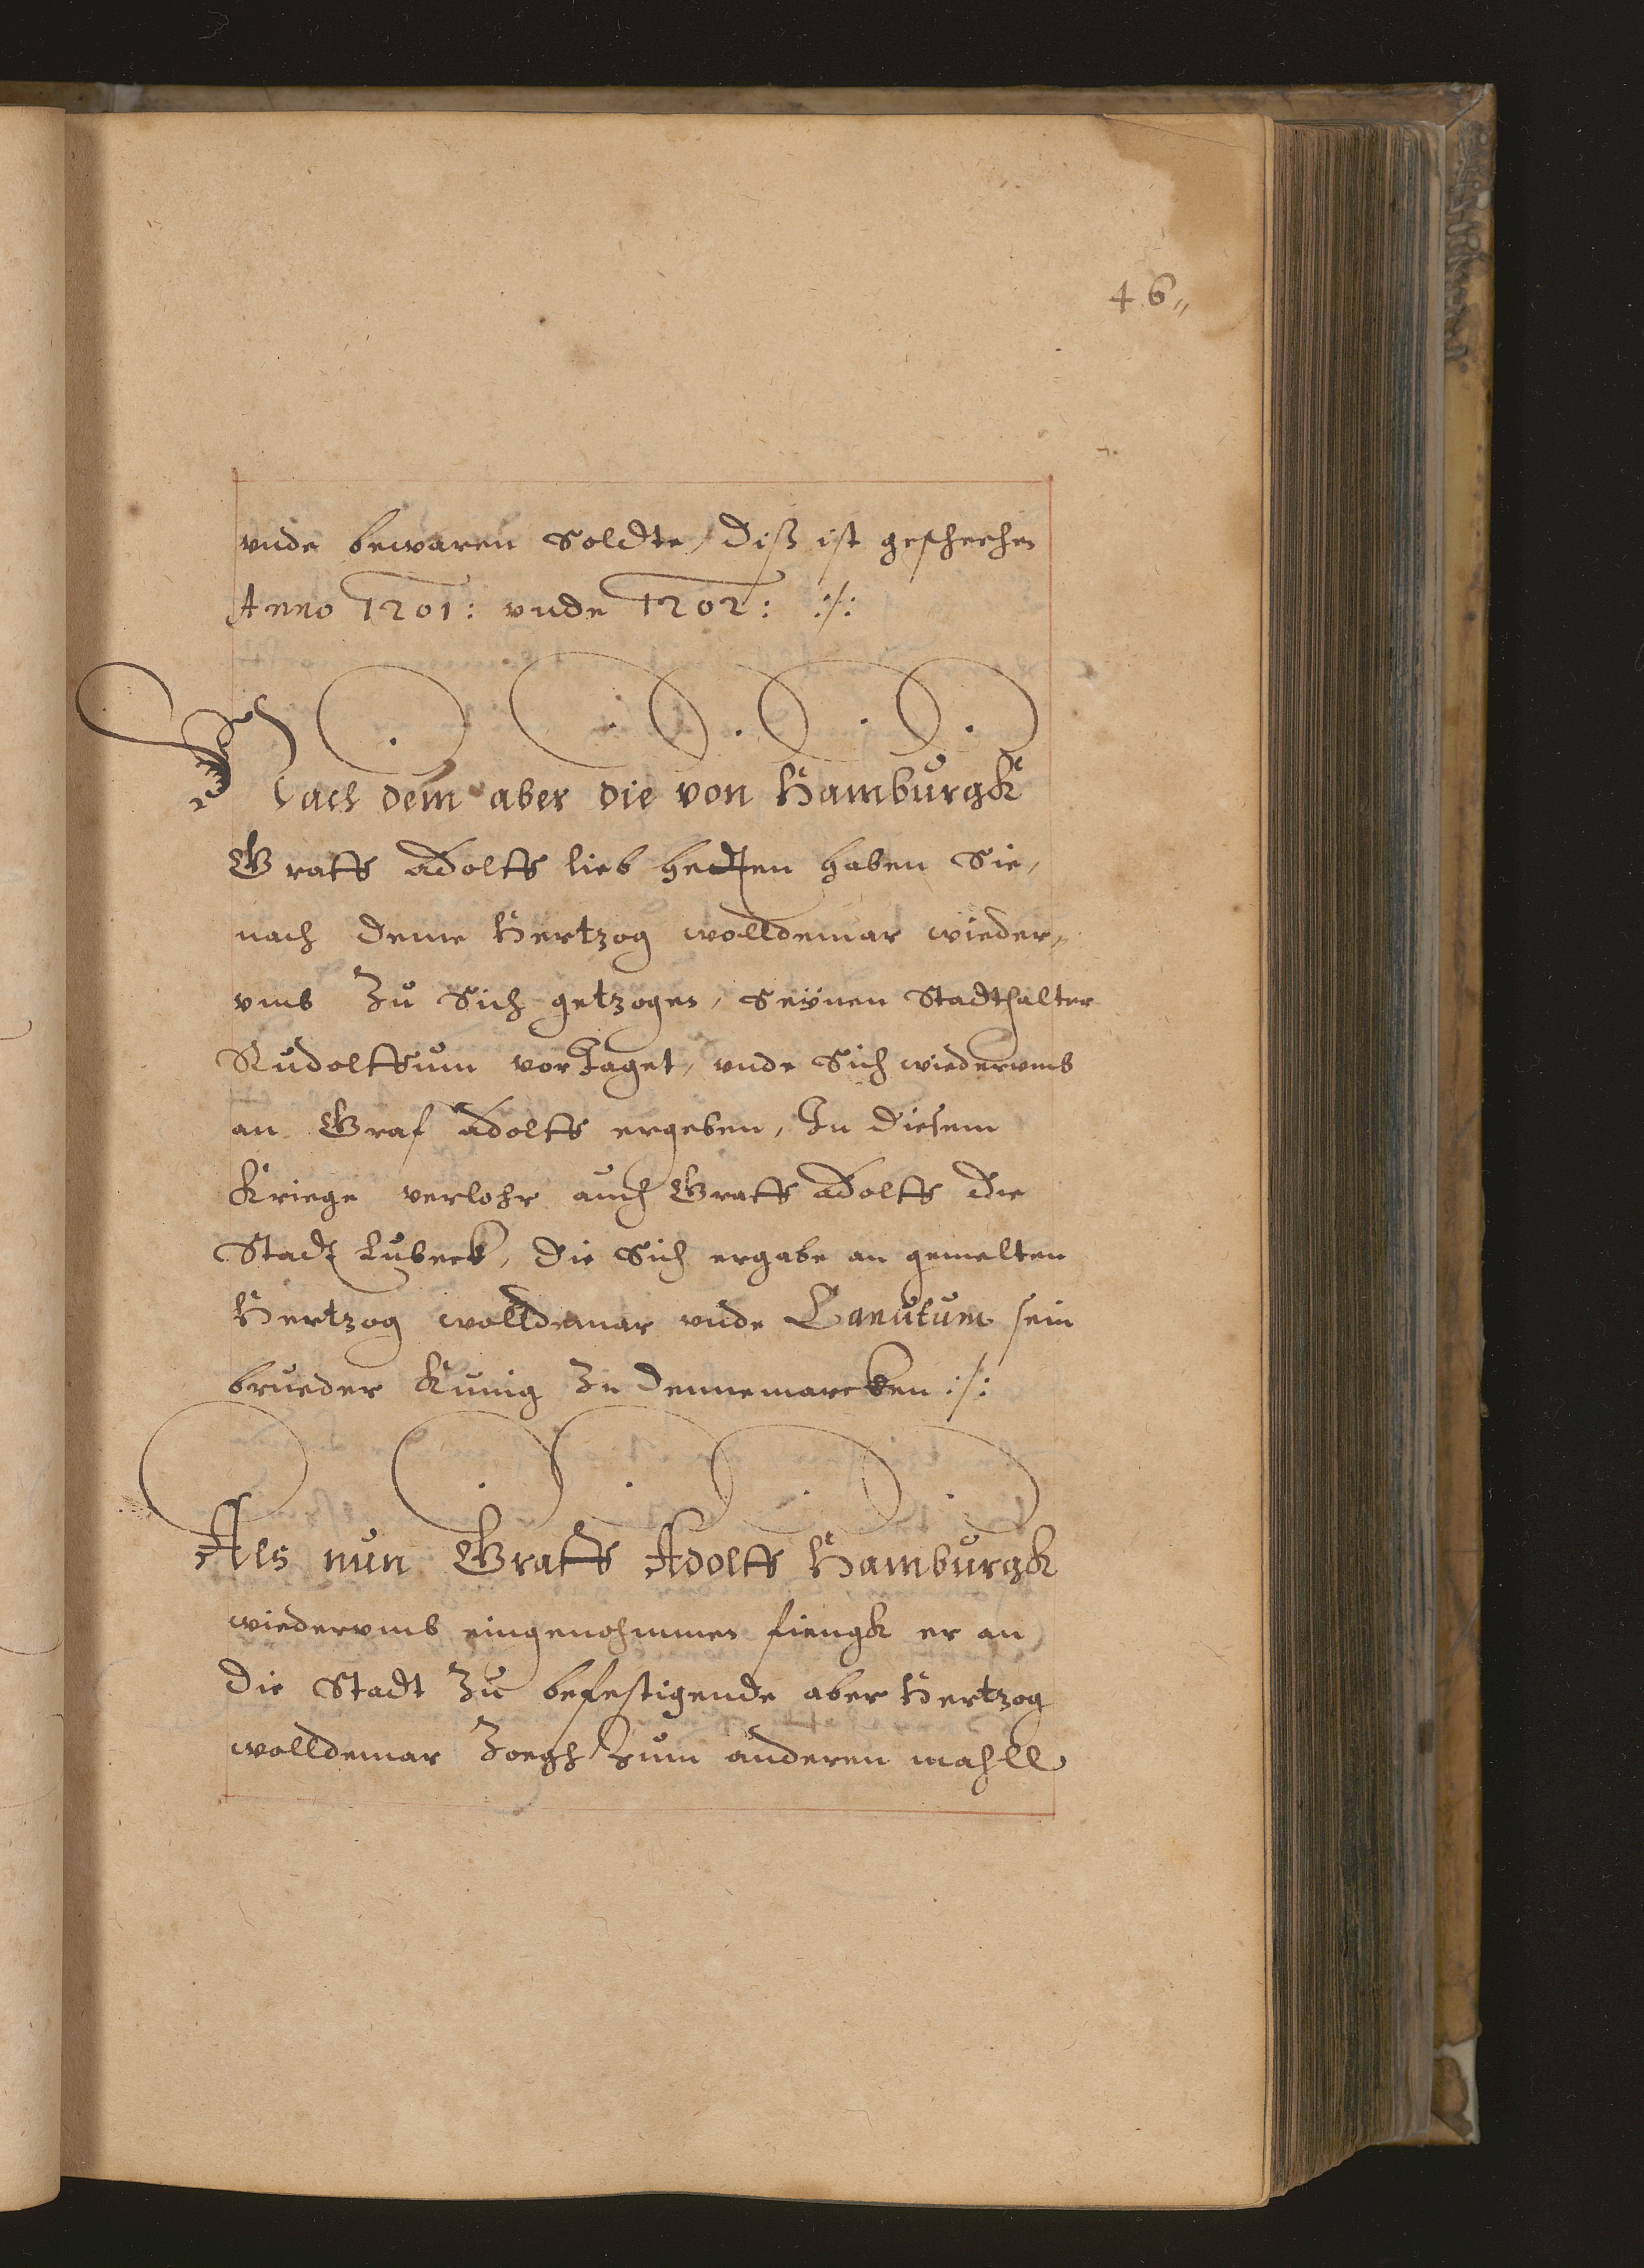 46„
vnde bewaren Soldte, Diß ist geschechen
Anno 1201: vnde 1202: :/:
Nach dem aber die von Hamburgk
Graff Adolff lieb hedten haben Sie,
nach deme Hertzog wolldemar wieder„
vmb Zu Sich getzogen, Seÿnen Stadthalter
Rudolffum vorJaget, vnde Sich wiedervmb
an Graf Adolff ergeben, In diesem
Kriege verlohr auch Graff Adolff die
Stadt Lubeck, die Sich ergabe an gemelten
Hertzog wolldemar vnde Canutum sein
brueder Kunig Zu Dennemarcken :/:
Als nun Graff Adolff Hamburgk
wiedervmb eingenohmmen fiengk er an
die Stadt Zu befestigende aber Hertzog
wolldemar Zoegh Zum anderen mahll